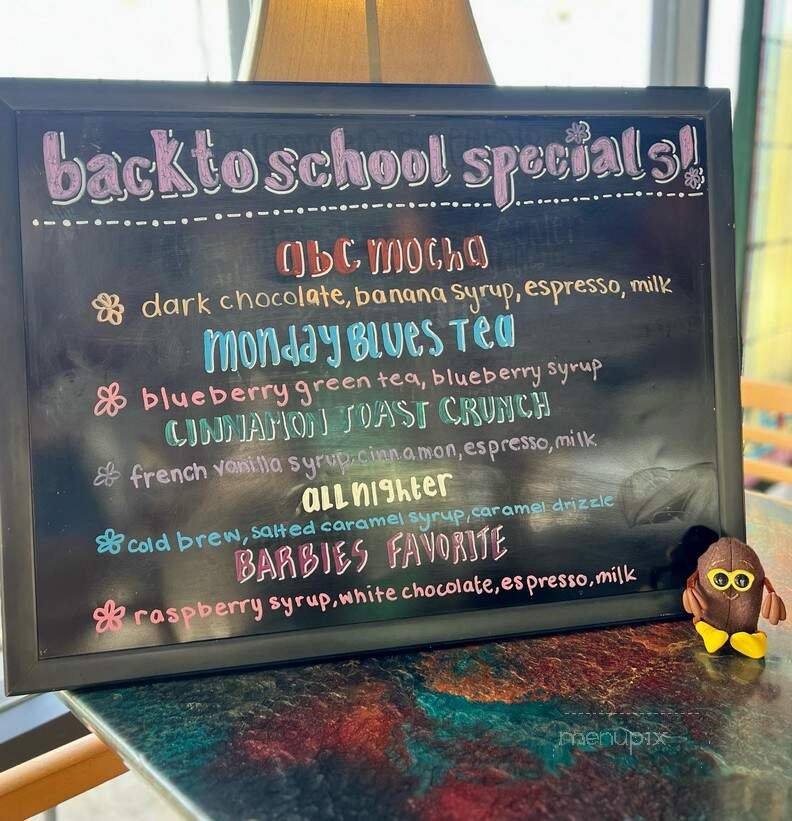 back to school specials!
abc mocha
dark chocolate, banana syrup, espresso, milk
Monday Blues Tea
blueberry green tea, blueberry syrup
CINNAMON TOAST CRUNCH
french vanilla syrup, cinnamon, espresso, milk
all nighter
cold brew, salted caramel syrup, caramel drizzle
BARBIES FAVORITE
raspberry syrup, white chocolate, espresso, milk
menupix